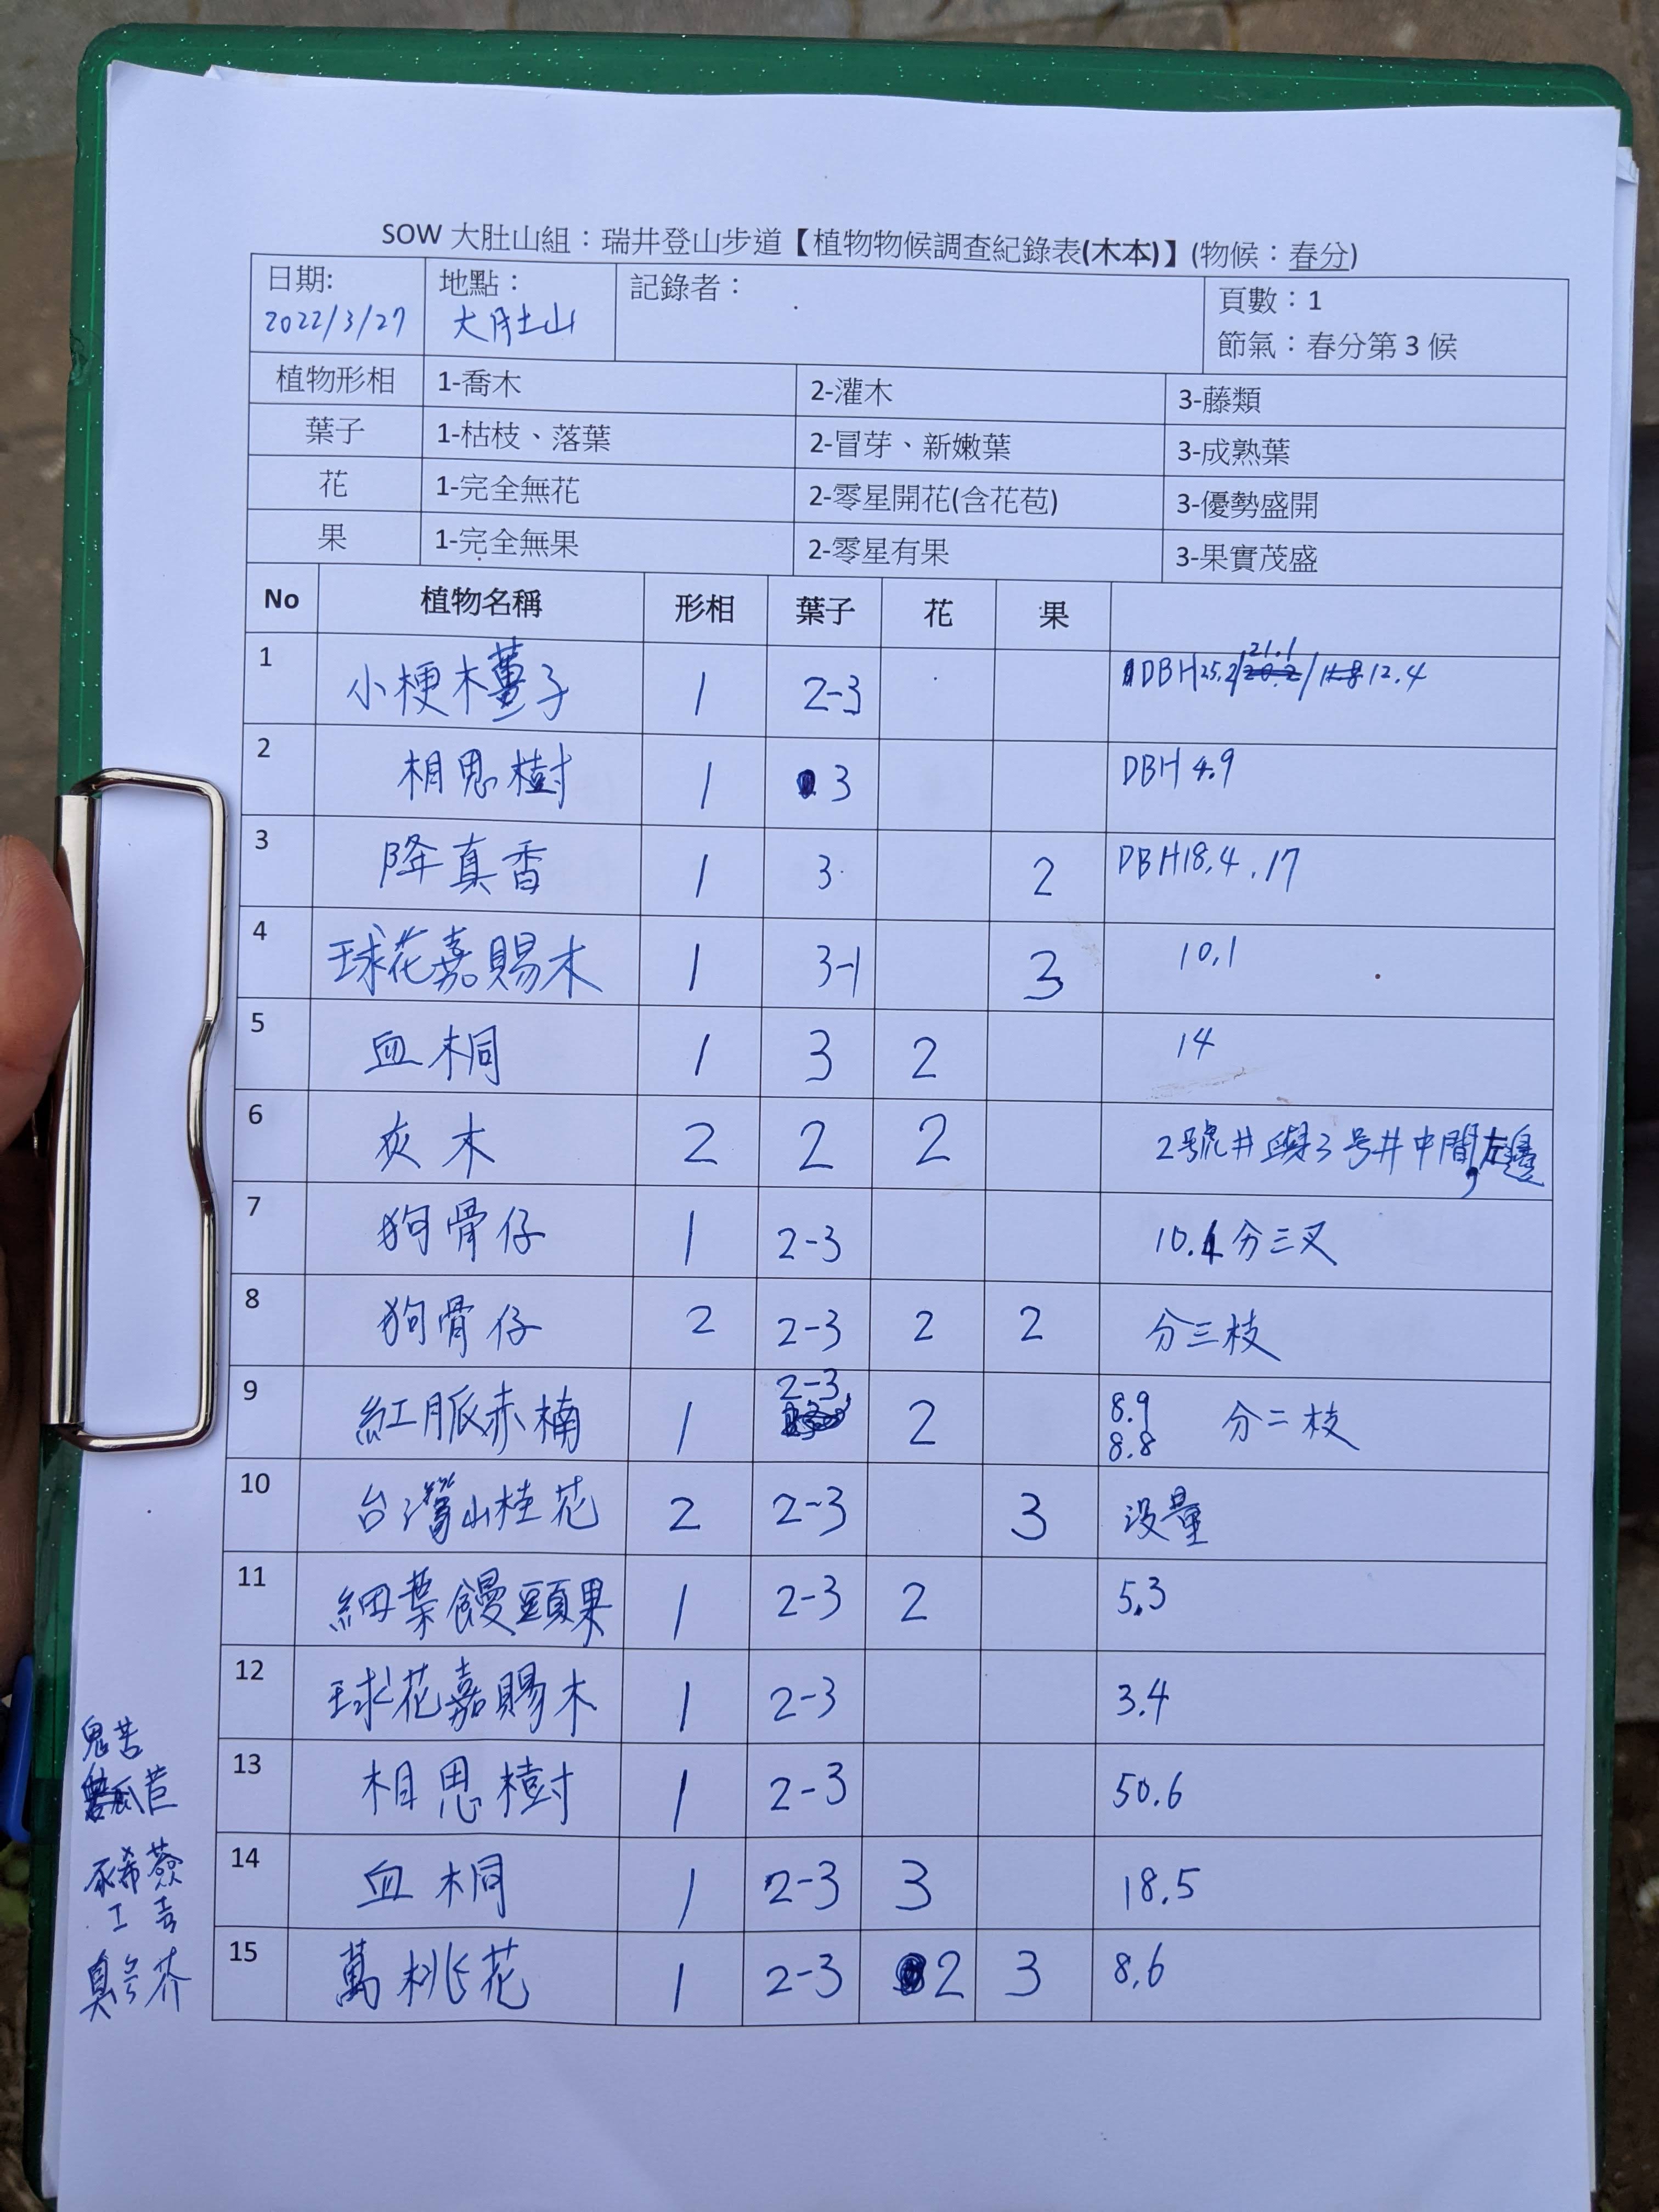 SOW 大肚山組：瑞井登山步道【植物物候調查紀錄表(木本)】(物候：春分)
日期: 地點： 記錄者： 頁數：1
2022/3/27 大肚山 節氣：春分第 3 候
植物形相 1-喬木 2-灌木 3-藤類
葉子 1-枯枝、落葉 2-冒芽、新嫩葉 3-成熟葉
花 1-完全無花 2-零星開花(含花苞) 3-優勢盛開
果 1-完全無果 2-零星有果 3-果實茂盛
No 植物名稱 形相 葉子 花 果
1 小梗木薑子 1 2-3 DBH 25.2/21.1/12.4
2 相思樹 1 3 DBH 4.9
3 降真香 1 3 2 DBH 18.4.17
4 球花嘉賜木 1 3-1 3 10.1
5 血桐 1 3 2 14
6 灰木 2 2 2 2號井與3号井中間,左邊
7 狗骨仔 1 2-3 10.1 分三叉
8 狗骨仔 2 2-3 2 2 分三枝
9 紅脈赤楠 1 2-3 2 8.9 8.8 分二枝
10 台灣山桂花 2 2-3 3 沒量
11 細葉饅頭果 1 2-3 2 5.3
12 球花嘉賜木 1 2-3 3.4
13 相思樹 1 2-3 50.6
14 血桐 1 2-3 3 18.5
15 萬桃花 1 2-3 2 3 8.6
鬼苦
苣
豨薟